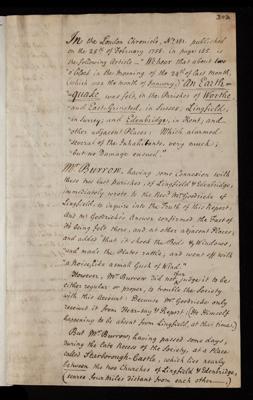 In the London Chronicle, No. 181. publish'd
on the 25th of February 1758. in page 185. is
the following Article — "We hear that about two
o'Clock in the morning of the 24th of last month,
(which was the month of January,) An Earth=
=quake was felt, in the Parishes of Worthe
and East-Grinsted, in Sussex; Lingfield,
in Surrey; and Edenbridge, in Kent; and
other adjacent Places: Which alarmed
several of the Inhabitants, very much;
but no Damage ensued."
Mr. Burrow, having some Connexion with
these two last parishes, of Lingfield & Edenbridge,
immediately wrote to the Revd. Mr. Godricke of
Lingfield, to inquire into the Truth of this Report.
And Mr. Godricke's Answer confirmed the Fact of
its being felt there, and at other adjacent Places;
and adds "that it shook the Beds & Windows,
and made the Plates rattle; and went off with
a Noise, like a small Gush of Wind."
However, Mr. Burrow did not then judge it to be
either regular or proper, to trouble the Society
with this Account: Because Mr. Godricke only
receiv'd it from Hear-say & Report; (He Himself
happening to be absent from Lingfield, at that time.)
But Mr. Burrow, having passed some days,
during the late Recess of the Society, at a Place
called Starborough-Castle, which lies nearly
between the two Churches of Lingfield & Edenbridge,
(scarce four Miles distant from each other,)